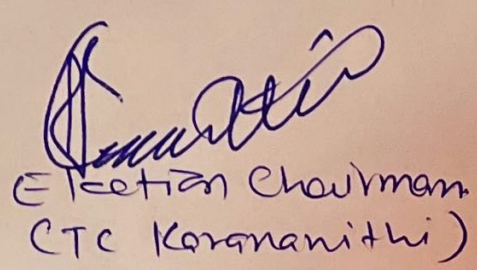 Elcetian Chairman
(CTC Karananithi)